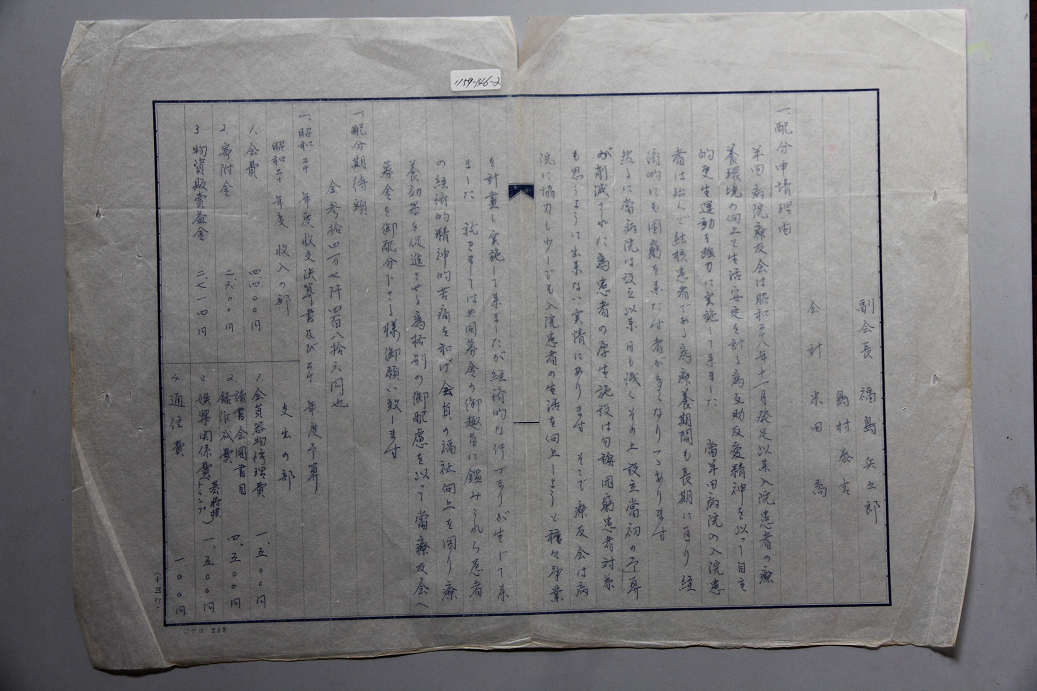 1159-146-2
副会長 福島兵五郎
島村泰吉
会計 米田喬
一、配分申請理由
半田病院療友会は昭和二八年十一月発足以来入院患者の療
養環境の向上と生活安定を計る為互助友愛精神を以って自主
的更生運動を強力に実施して来ました 当半田病院の入院患
者は殆んど結核患者である為療養期間も長期に亘り経
済的にも困窮を来た付者が多くなりつゝあります
然るに当病院は設立以来日も浅くその上設立当初の予算
が削減された為患者の厚生施設は勿論困窮患者対策
も思うように出来ない実情にあります そこで療友会は病
院に協力し少しでも入院患者の生活を向上しようと種々事業
を計画し実施して来ましたが経済的な行づまりが生じて来
ました 就きましては共同募金の御趣旨に鑑みられこれら患者
の経済的精神的苦痛を和げ会員の福祉向上を図り療
養効果を促進させる為格別の御配慮を以って当療友会へ
募金を御配分下さる様御願い致します
一、配分期待額
金参拾四万七阡四百八拾六円也
一、昭和三十年度収支決算書及び 年度予算
昭和三十年度 収入の部
1. 会費 四四〇〇円
2. 寄附金 二六〇〇円
3. 物資販売益金 二七一四円
支出の部
1. 会員器物修理費 一、五〇〇円
2. 読書会図書目録作成費 四、五〇〇円
3. 娯楽関係費 (将棋 トランプ) 一、五〇〇円
4. 通信費 一〇〇円